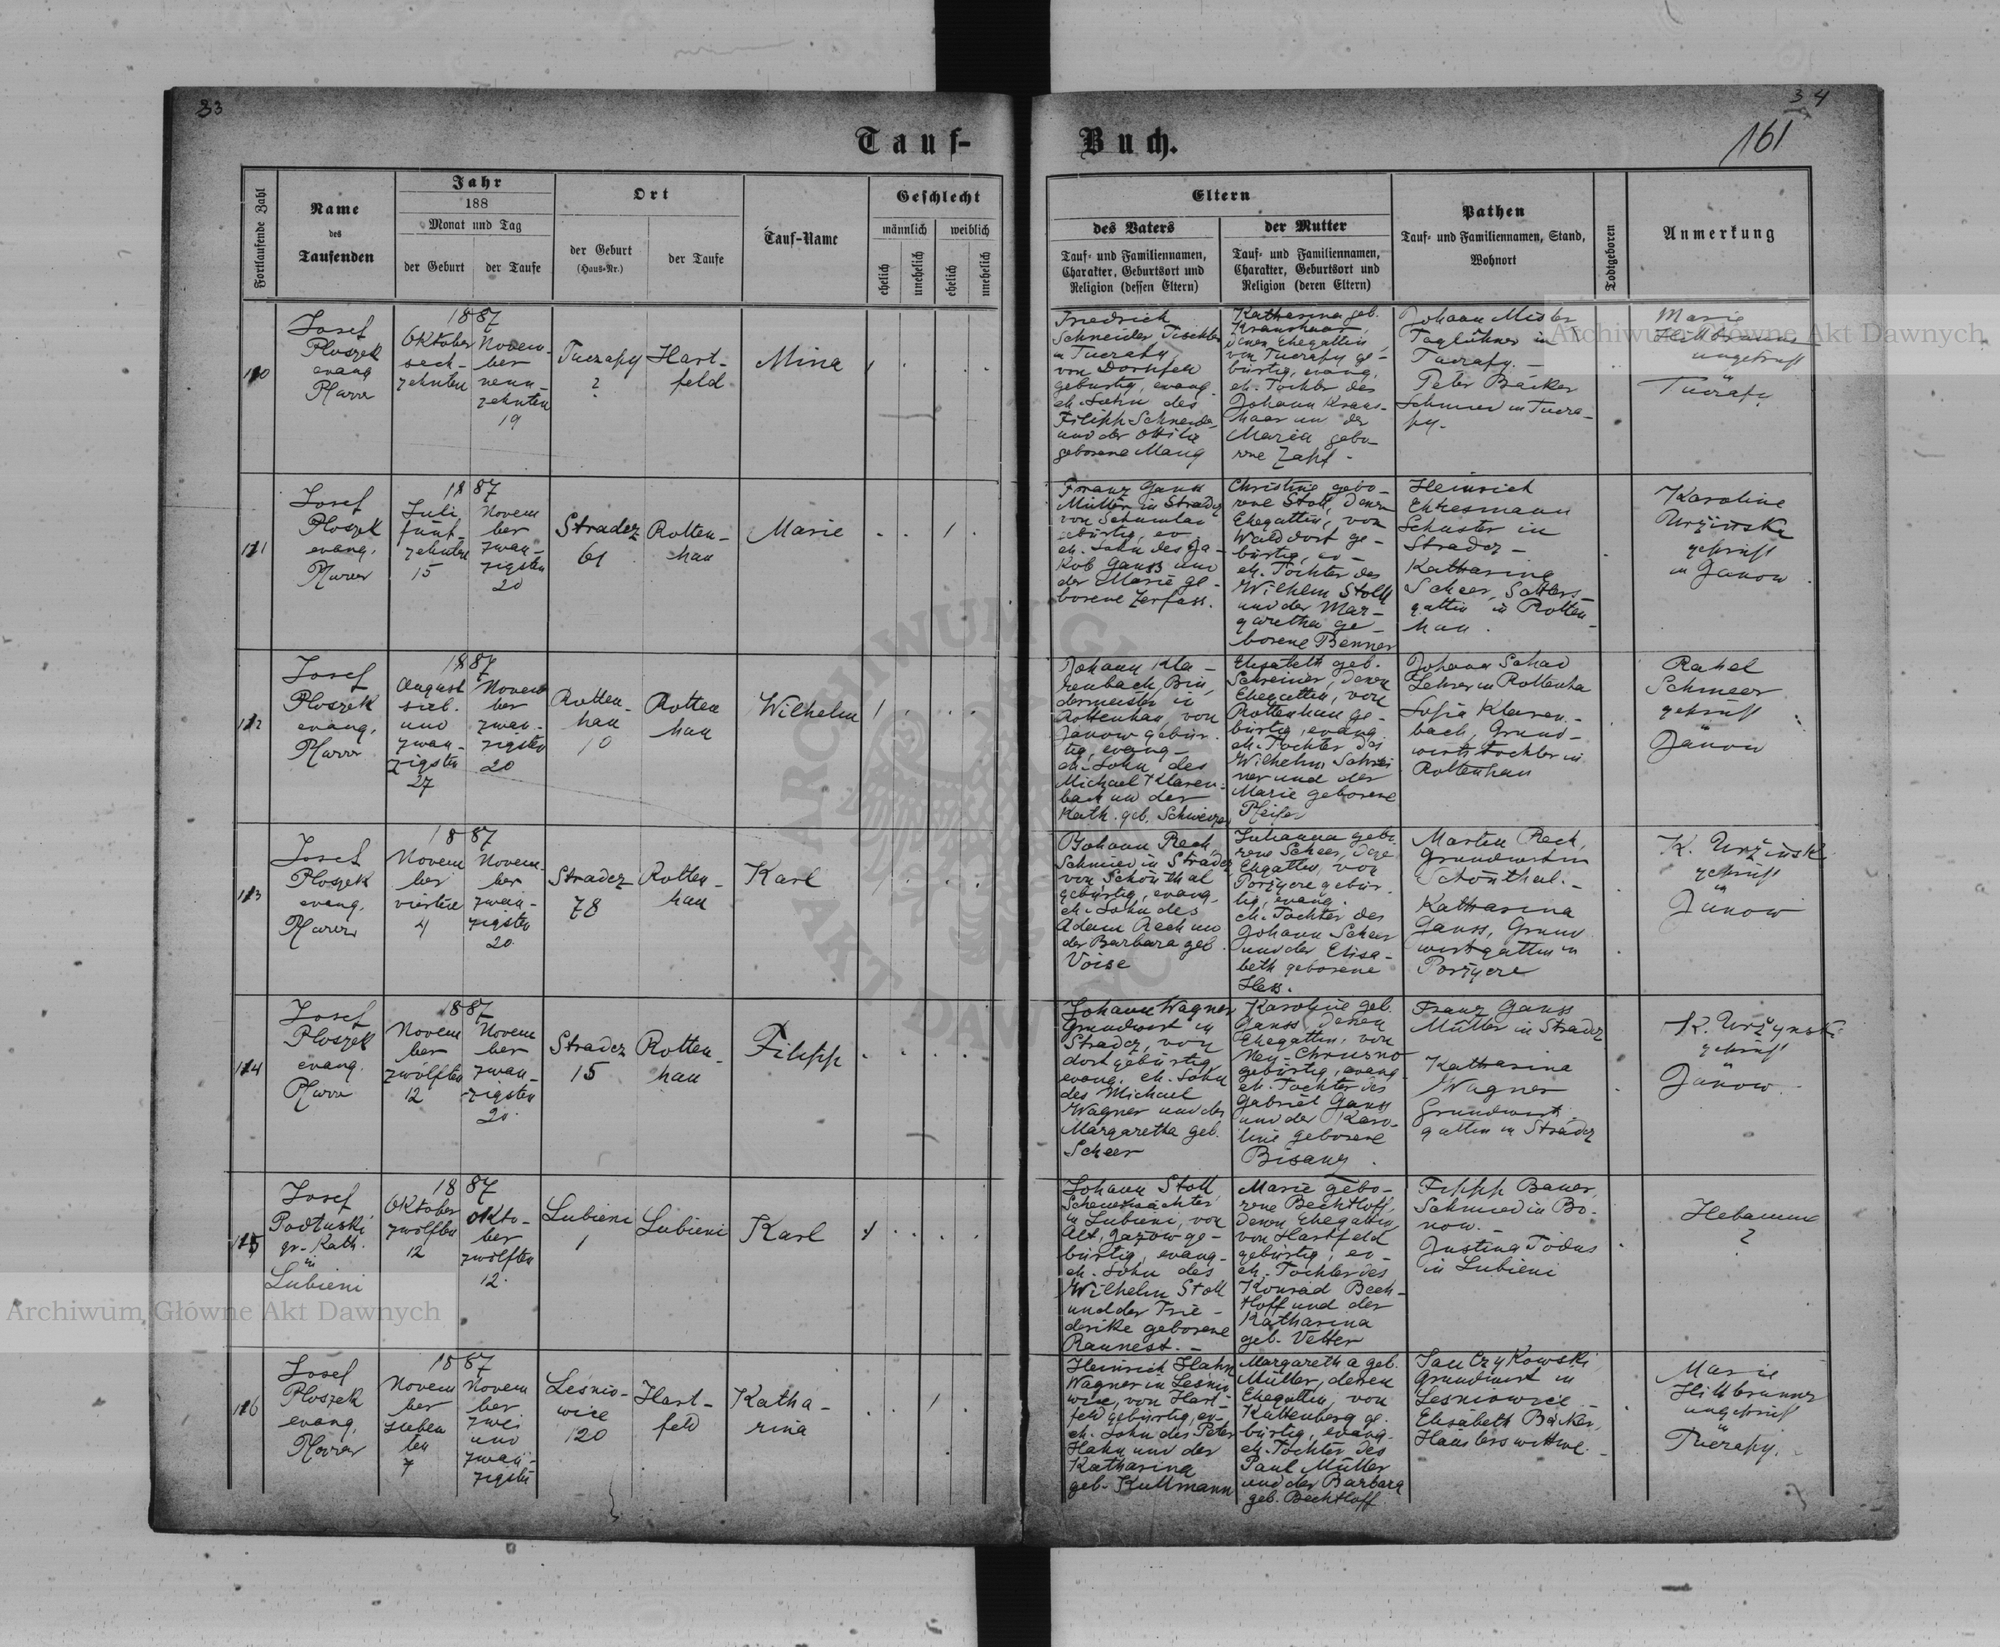 33
34
161
Tauf-
Buch.
Fortlaufende Zahl
Name
des
Taufenden
Jahr
188
Monat und Tag
der Geburt
der Taufe
Ort
der Geburt
(Haus-Nr.)
der Taufe
Tauf-Name
Geschlecht
männlich
weiblich
ehelich
unehelich
ehelich
unehelich
Eltern
des Vaters
Tauf- und Familiennamen,
Charakter, Geburtsort und
Religion (dessen Eltern)
der Mutter
Tauf- und Familiennamen,
Charakter, Geburtsort und
Religion (deren Eltern)
Pathen
Tauf- und Familiennamen, Stand,
Wohnort
Todtgeboren
Anmerkung
110
Josef
Ploszek
evang
Pfarrer
1887
Oktober
sech-
zehnten
Novem-
ber
neun-
zehnten
19
Tuczapy
?
Hart-
feld
Mina
Friedrich
Schneider Tischler
in Tuczapy
von Dornfeld
gebürtig, evang.
eh. Sohn des
Filipp Schneider
und der Ottilie
geborene Mang
Katharina geb.
Kraushaar,
deren Ehegattin,
von Tuczapy ge-
bürtig, evang,
eh. Tochter des
Johann Kraus-
haar un der
Maria gebo-
rene Zapf.
Johann
Taglöhner in
Tuczapy. -
Peter Bäcker
Schmied in Tucza-
py.
Marie
Hillbrunner
ungeprüft
Tuczapy
111
Josef
Ploszek
evang.
Pfarrer
1887
Juli
fünf-
zehnten
15
Novem
ber
zwan-
zigsten
20
Stradcz
61
Rotten-
han
Marie
Franz Ganss
Müller in Stradcz
von Schumlau
gebürtig, ev.
eh. Sohn des Ja-
kob Ganss und
der Marie ge-
borene Zerfass.
Christine gebo-
rene Stoll, deren
Ehegattin, von
Walddorf ge-
bürtig, ev-
eh. Tochter des
Wilhelm Stoll
und der Mar-
garetha ge-
borene Benner
Heinrich
Ehresmann
Schuster in
Stradcz -
Katharina
Scheer,
gattin in Rotten-
han.
Karoline
Urżinska
geprüft
in Janow
112
Josef
Ploszek
evang,
Pfarrer
1887
August
sieb.
und
zwan-
zigsten
27
Novem
ber
zwan-
zigsten
20
Rotten-
han
10
Rotten
han
Wilhelm
Johann Kla-
renbach, Bin
dermeister in
Rottenhan, von
Janow gebür-
tig, evang-
eh. Sohn des
Michael Klaren-
bach und der
Kath. geb. Schweizer
Elisabeth geb.
Schreiner, deren
Ehegattin, von
Rottenhan ge-
bürtig, evang
eh. Tochter des
Wilhelm Schrei
ner und der
Marie geborene
Pfeifer
Johann Schad
Lehrer in Rottenha
Sofia Klaren-
bach, Grund-
wirts tochter in
Rottenhan
Rahel
Schmeer
geprüft
Janow
113
Josef
Ploszek
evang.
Pfarrer
1887
Novem
ber
vierten
4
Novem
ber
zwan-
zigsten
20.
Stradcz
78
Rotten-
han
Karl
Johann Rech
Schmied in Stradcz
von Schönthal
gebürtig, evang.
eh. Sohn des
Adam Rech und
der Barbara geb.
Voise
Juliana gebo
rene Scheer, deren
Ehegattin, von
Porzyce gebür-
tig, evang.
eh. Tochter des
Johann Scheer
und der Elisa-
beth geborene
Hess.
Martin Rech,
Grundwirt in
Schönthal. -
Katharina
Ganss, Grund
wirtsgattin in
Porzyce
K. Urżinski
geprüft
Janow
114
Josef
Ploszek
evang.
Pfarrer
1887
Novem
ber
zwölften
12
Novem
ber
zwan-
zigsten
20.
Stradcz
15
Rotten-
han
Filipp
Johann Wagner
Grundwirt in
Stradcz, von
dort gebürtig
evang. eh. Sohn
des Michael
Wagner und der
Margaretha geb.
Scheer
Karoline geb.
Ganss, deren
Ehegattin, von
Neu-Chrusno
gebürtig, evang.
eh. Tochter des
Gabriel Ganss
und der Karo-
line geborene
Bisanz.
Franz Ganss
Müller in Stradcz
Katharina
Wagner
Grundwirt
gattin in Stradcz
K. Urżynski
geprüft
Janow
115
Josef
Podłuski
gr-Kath.
in
Lubieni
1887
Oktober
zwölften
12
Okto-
ber
zwölften
12.
Lubieni
1
Lubieni
Karl
Johann Stoll
in Lubieni, von
Alt Jazow ge-
bürtig, evang-
eh. Sohn des
Wilhelm Stoll
und der Frie-
derike geborene
Marie gebo-
rene Bechtloff,
deren Ehegattin
von Hartfeld
gebürtig, ev-
eh. Tochter des
Konrad Bech-
tloff und der
Katharina
geb. Vetter
Filipp Bauer,
Schmied in Bo-
now. -
Justina
in Lubieni
Hebamme
?
116
Josef
Ploszek
evang,
Pfarrer
1887
Novem
ber
sieben
ten
7
Novem
ber
zwei
und
zwan-
zigsten
Leśnio-
wice
120
Hart-
feld
Katha-
rina
Heinrich Hahn
Wagner in Leśnio
wice, von Hart-
feld gebürtig, ev-
eh. Sohn des Peter
Hahn und der
Katharina
geb. Kullmann
Margaretha geb.
Müller, deren
Ehegattin, von
Kaltenberg ge.
bürtig, evang.
eh. Tochter des
Paul Müller
und der Barbara
geb. Bechtloff
Jan Czykowski
Grundwirt in
Leśniowice -
Elisabeth Bäcker,
Häuslers wittwe. -
Marie
Hillbrunner
ungeprüft
in
Tuczapy.
Archiwum Główne Akt Dawnych
Archiwum Główne Akt Dawnych
ARCHIWUM GŁÓWNE AKT DAWNYCH